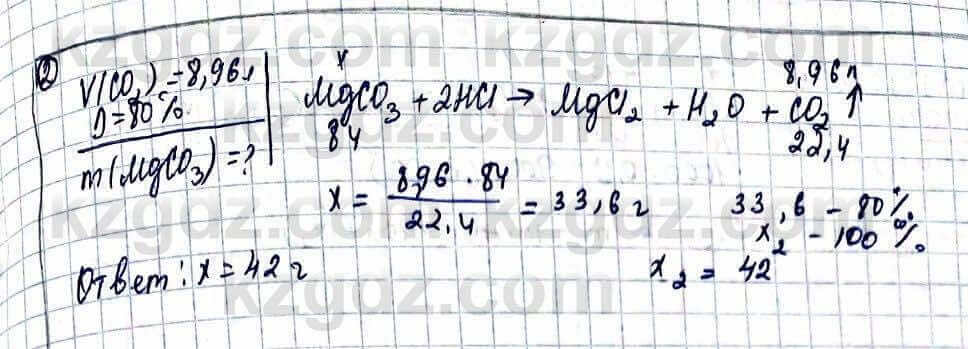 ②
V(CO₂) = 8,96 л
η = 80%
m(MgCO₃) = ?
x 8,96 л
MgCO₃ + 2HCl → MgCl₂ + H₂O + CO₂↑
84 22,4
x = 896 · 84 / 22.4 = 33,6 г
33,6 – 80%
x₂ – 100%
x₂ = 42
Ответ: x = 42 г
kzgdz.com